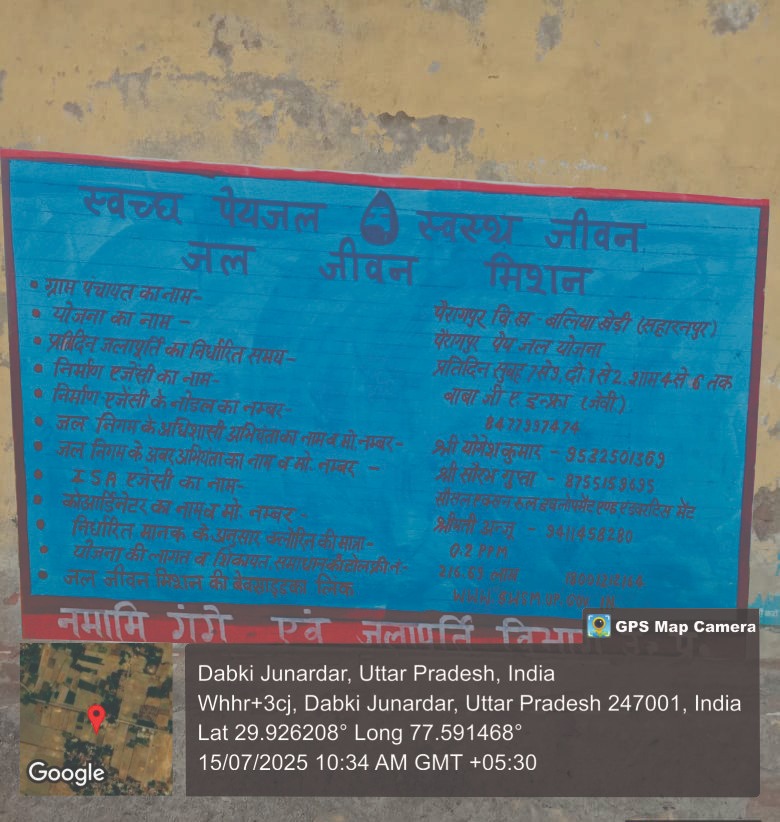 स्वच्छ पेयजल स्वस्थ जीवन
जल जीवन मिशन
• ग्राम पंचायत का नाम-
पैरागपुर वि.ख - बलिया खेडी (सहारनपुर)
• योजना का नाम -
पैरागपुर पेय जल योजना
• प्रतिदिन जलापूर्ति का निर्धारित समय-
प्रतिदिन सुबह 7 से 9, दो. 1 से 2, शाम 4 से 6 तक
• निर्माण एजेंसी का नाम-
बाबा जी ए इन्फ्रा (जेवी)
• निर्माण एजेंसी के नोडल का नम्बर-
8477997474
• जल निगम के अधिशासी अभियंता का नाम व मो. नम्बर-
श्री योगेश कुमार -
• जल निगम के अवर अभियंता का नाम व मो. नम्बर -
श्री सौरभ गुप्ता -
• ISA एजेंसी का नाम-
• कोआर्डिनेटर का नाम व मो. नम्बर -
श्रीमती अन्जू - 9411458280
• निर्धारित मानक के अनुसार क्लोरिन की मात्रा-
0.2 PPM
• योजना की लागत व शिकायत समाधान की टोल फ्री न.-
लाख
• जल जीवन मिशन की वेबसाइट का लिंक
नमामि गंगे एवं जलापूर्ति
GPS Map Camera
Dabki Junardar, Uttar Pradesh, India
Whhr+3cj, Dabki Junardar, Uttar Pradesh 247001, India
Lat 29.926208° Long 77.591468°
15/07/2025 10:34 AM GMT +05:30
Google